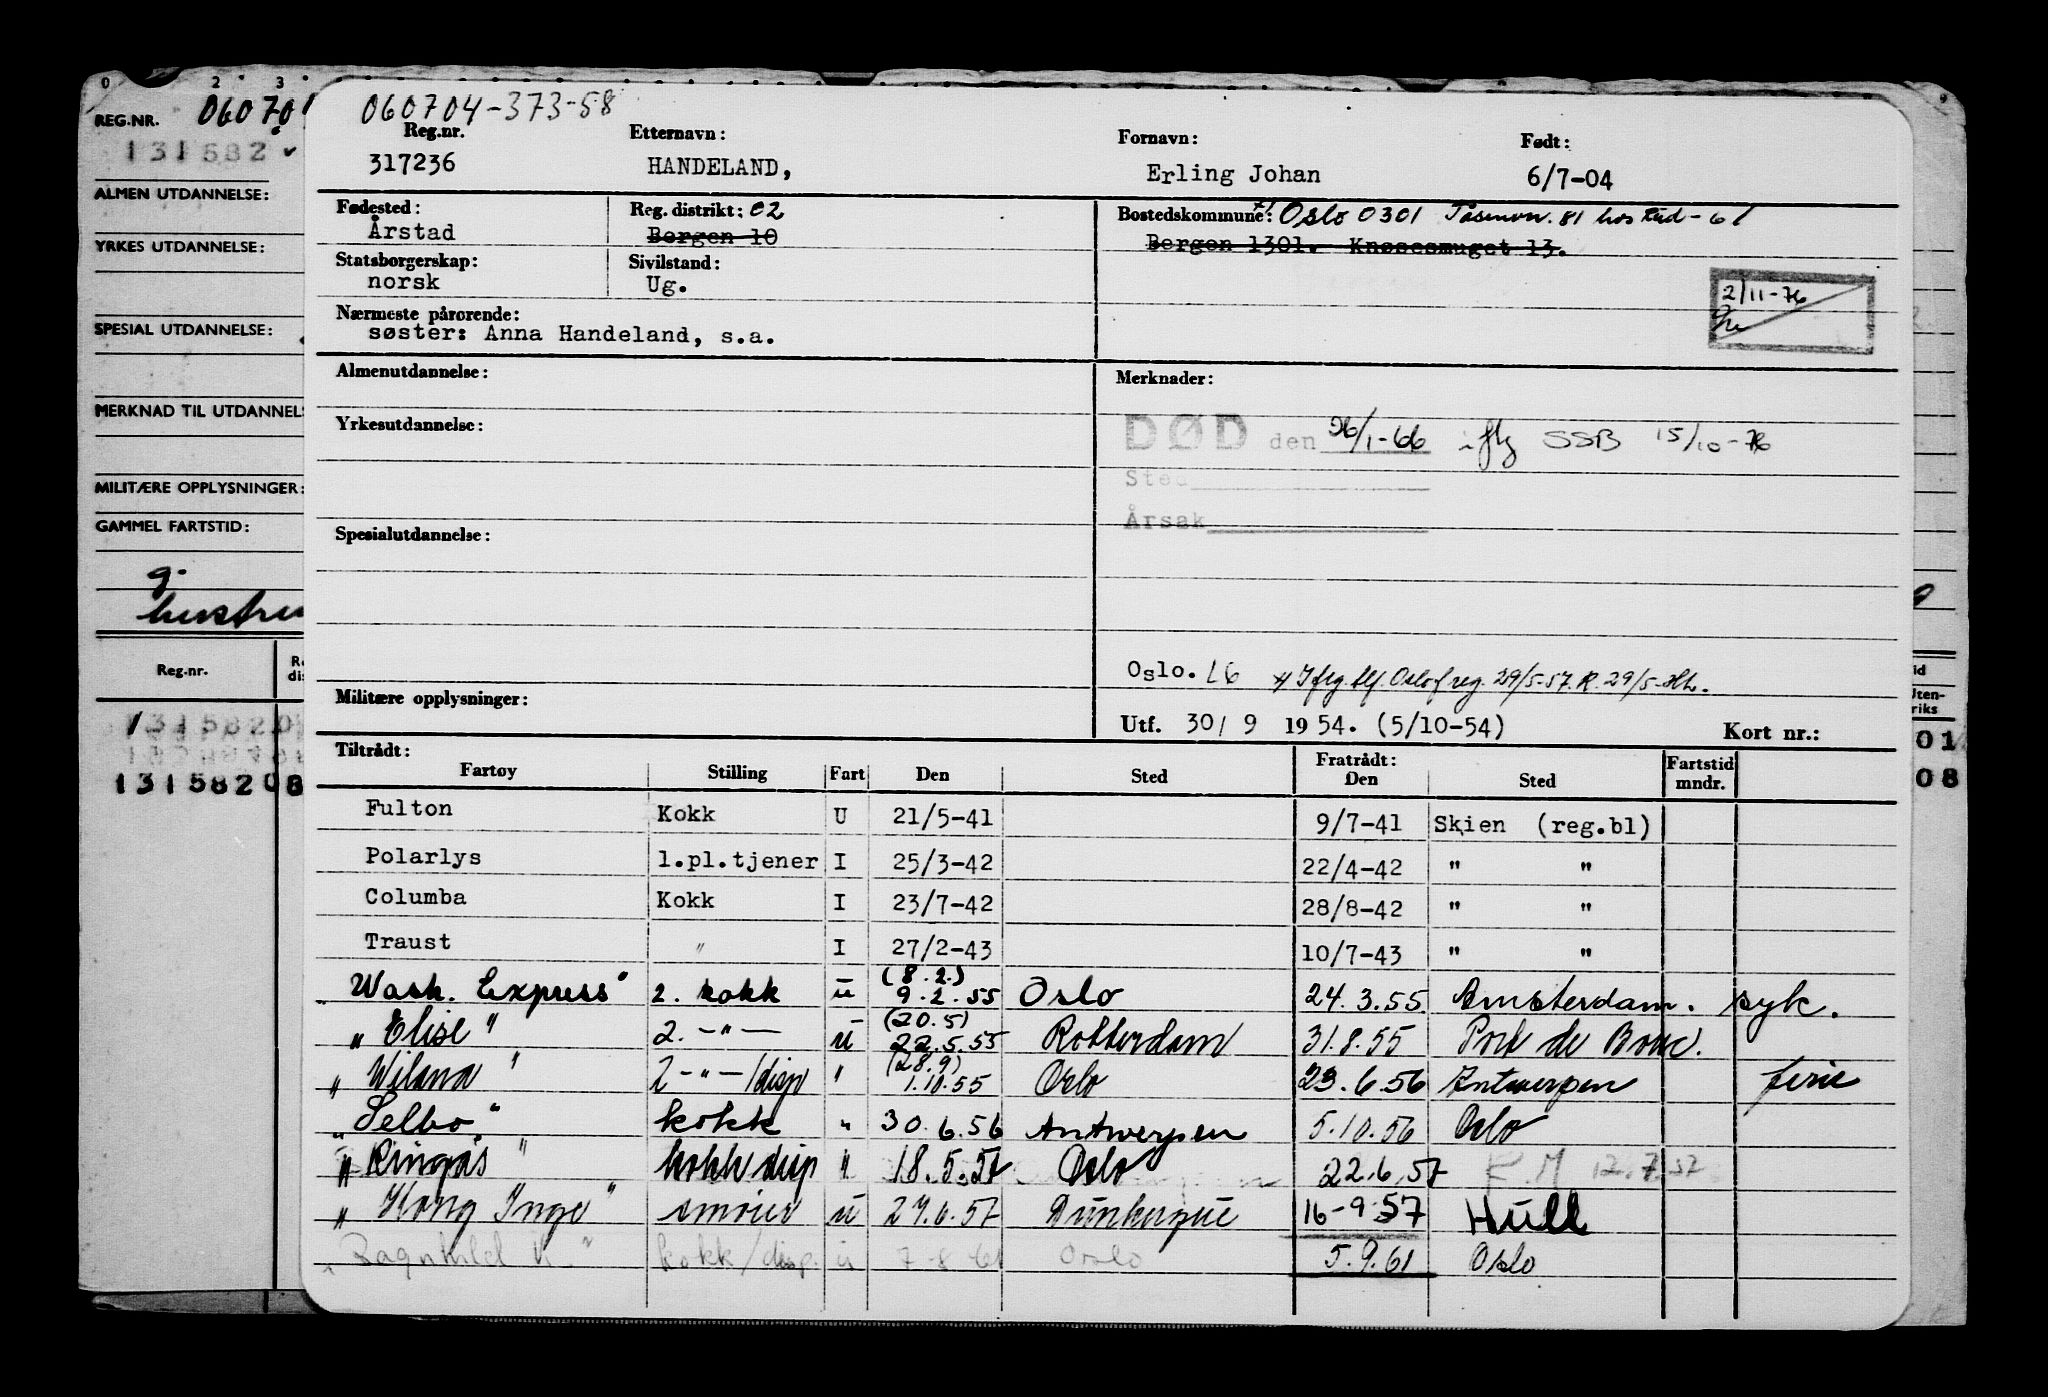 0 2 3
REG.NR. 06070
131582
ALMEN UTDANNELSE:
YRKES UTDANNELSE:
SPESIAL UTDANNELSE:
MERKNAD TIL UTDANNELS
MILITÆRE OPPLYSNINGER:
GAMMEL FARTSTID:
g.
Reg.nr.
131582 0
131582 08
01
08
060704-373-58
Reg.nr. Etternavn: Fornavn: Født:
317236 HANDELAND, Erling Johan 6/7-04
Fødested: Reg. distrikt: 02 Bostedskommune: Oslo 0301 81
Årstad Bergen 10 Bergen 1301. Knøsesmuget 13.
Statsborgerskap: Sivilstand:
norsk Ug.
2/11-76
Nærmeste pårørende:
søster: Anna Handeland, s.a.
Almenutdannelse: Merknader:
Yrkesutdannelse: DØD den 26/1-66 iflg SSB 15/10-76
Sted
Årsak
Spesialutdannelse:
Oslo. L6 x) Iflg. tlf. Oslo f.reg. 29/5-57. R. 29/5-Hh.
Militære opplysninger: Utf. 30/ 9 1954. (5/10-54) Kort nr.:
Tiltrådt: Fratrådt: Fartstid
Fartøy Stilling Fart Den Sted Den Sted mndr.
Fulton Kokk U 21/5-41 9/7-41 Skien (reg.bl)
Polarlys 1.pl.tjener I 25/3-42 22/4-42 " "
Columba Kokk I 23/7-42 28/8-42 " "
Traust " I 27/2-43 10/7-43 " "
(8.2.)
"Wash. Express" 2. kokk u 9.2.55 Oslo 24.3.55 Amsterdam. syk.
(20.5)
"Elise" 2. -"- u 22.5.55 Rotterdam 31.8.55 Port de Bouc.
(28.9)
"Wilana" 2 -"-/disp " 1.10.55 Oslo 23.6.56 Antwerpen ferie
"Selbo" kokk " 30.6.56 Antwerpen 5.10.56 Oslo
"Ringås" kokk disp " 18.5.57 Oslo 22.6.57 R.M 12.7.57
"Kong Inge" smører u 27.6.57 Dunkerque 16-9-57 Hull
"Ragnhild K." kokk/disp. u 7-8-61 Oslo 5.9.61 Oslo